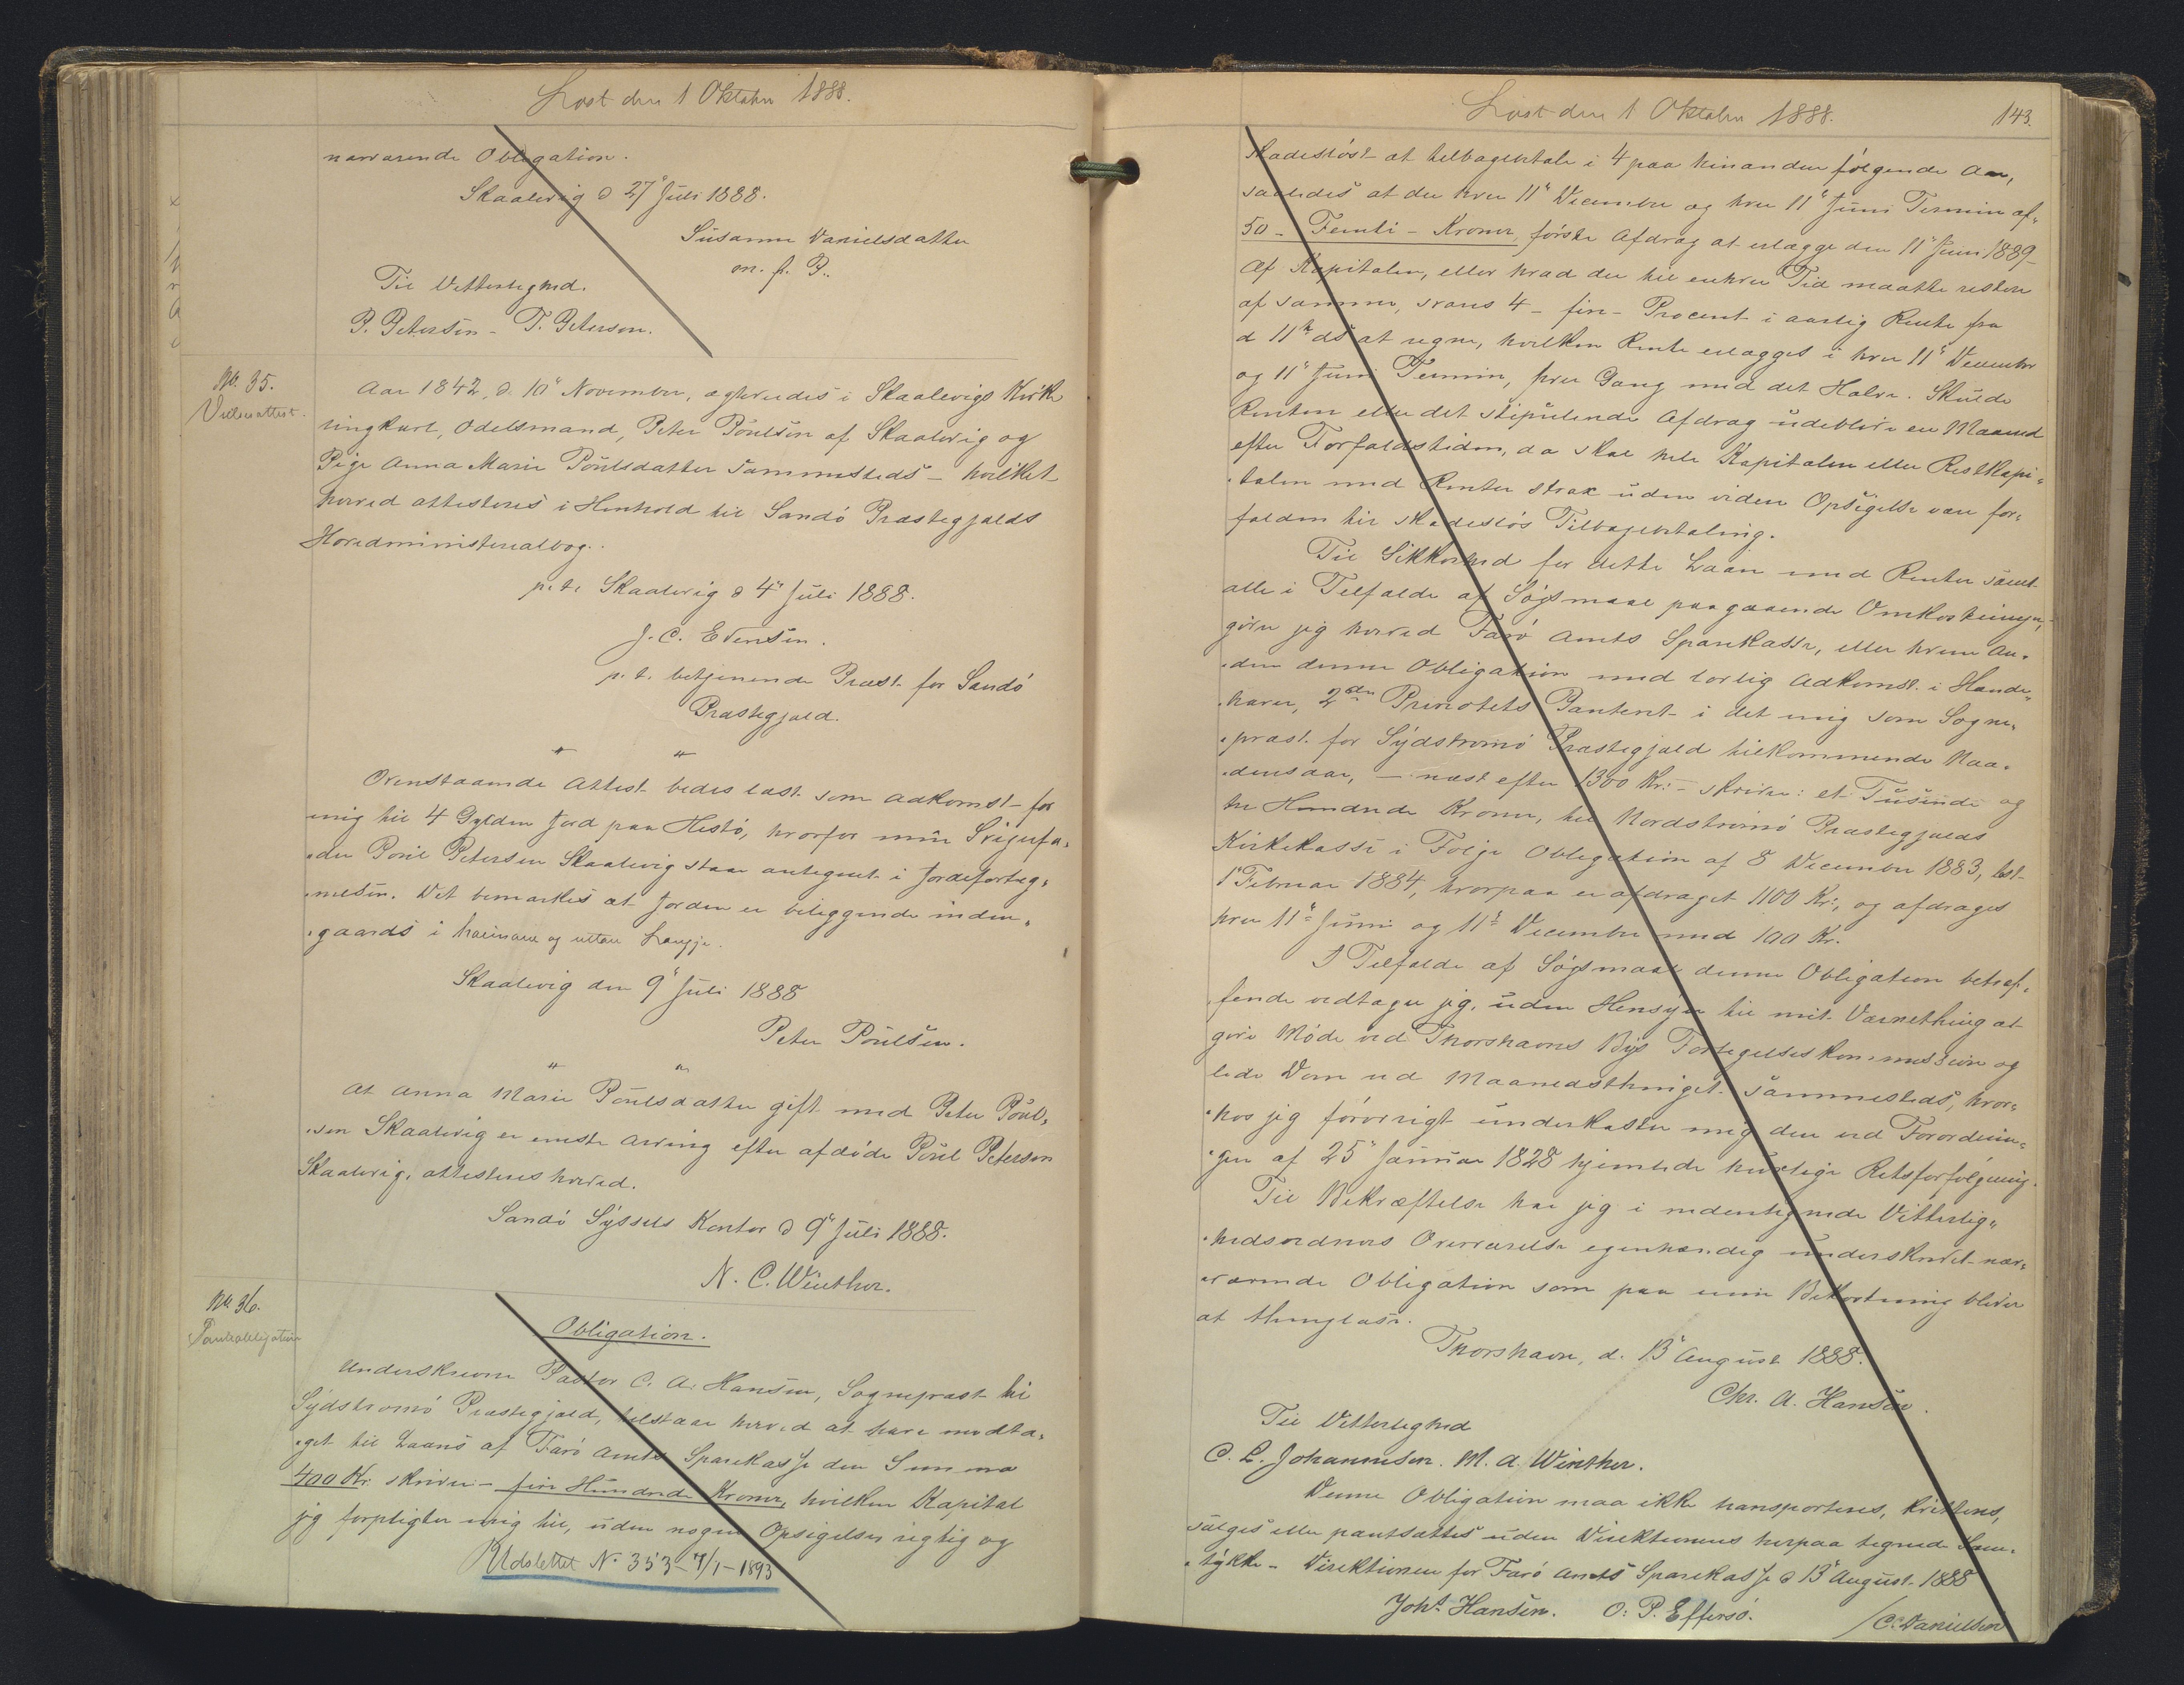 Læst den 1 Oktober 1888.
nærværende Obligation.
Skaalevig d 27' Juli 1888.
Susanne Danielsdatter
m. f. P.
Til Vitterlighed.
P. Petersen - T. Peterson.
No. 35.
Vielsesattest.
Aar 1842, d. 10' November, ægteviedes i Skaalevigs Kirke
ungkarl, Odelsmand, Peter Poulsen af Skaalevig og
Pige Anna Marie Poulsdatter sammesteds - hvilket
herved attesteres i Henhold til Sandö Præstegjælds
Hovedministerialbog.
p. t. Skaalevig d 4' Juli 1888.
J. C. Evensen.
p. t. betjenende Præst for Sandö
Præstegjæld.
" "
Ovenstaaende Attest bedes læst som Adkomst for
mig til 4 Gylden Jord paa Hestö, hvorfor min Svigerfa„
„der Poul Petersen Skaalevig staar antegnet i Jordeforteg„
„nelsen. Det bemærkes at Jorden er beliggende inden„
„gaards i heimara og uttara Laugje.
Skaalevig den 9' Juli 1888
Peter Poulsen.
" "
At Anna Marie Poulsdatter gift med Peter Poul„
„sen Skaalevig er eneste Arving efter afdöde Poul Peterson
Skaalevig, attesteres herved.
Sandö Syssels Kontor d 9' Juli 1888.
N. C. Winther.
No 36.
Panteobligation
Obligation.
Underskrevne Pastor C. A. Hansen, Sognepræst til
Sydströmö Præstegjæld, tilstaar herved at have modta„
„get til Laans af Færö Amts Sparekasse den Summa
400 Kr. skriver - fire Hundrede Kroner, hvilken Kapital
jeg forpligter mig til, uden nogen Opsigelse rigtig og
Udslettet No 353 - 7/1 - 1893
Læst den 1 Oktober 1888.
143.
skadeslöst at tilbagebetale i 4 paa hinanden fölgende Aar,
saaledes at der hver 11' December og hver 11' Juni Termin af„
50 - Femti - Kroner, förste Afdrag at erlægge den 11' Juni 1889
Af Kapitalen, eller hvad der til enhver Tid maatte restere
af samme, svares 4 - fire - Procent i aarlig Rente fra
d 11' ds at regne, hvilken Rente erlægges i hver 11' December
og 11' Juni Termin, hver Gang med det Halve. Skulde
Renten eller det stipulerede Afdrag udeblive en Maaned
efter Forfaldstiden, da skal hele Kapitalen eller Restkapi„
„talen med Renter strax uden viden Opsigelse være for„
falden til skadeslös Tilbagebetaling.
Til Sikkerhed for dette Laan med Renter samt
alle i Tilfælde af Sögsmaal paagaaende Omkostninger,
giver jeg herved Færö Amts Sparekasse, eller hvem An„
„den denne Obligation med lovlig Adkomst i Hænde„
„haver, 2den Prioritets Panteret i det mig som Sogne„
„præst for Sydströmö Præstegjæld tilkommende Naa„
„densaar, - næst efter 1300 Kr. - skriver: et Tusinde og
tre Hundrede Kroner, til Nordströmö Præstegjælds
Kirkekasse i Følge Obligation af 8 December 1883, læst
1' Februar 1884, hvorpaa er afdraget 1100 Kr., og afdrages
hver 11' Juni og 11' December med 100 Kr.
I Tilfælde af Sögsmaal denne Obligation betræf„
fende vedtager jeg, uden Hensyn til mit Værnething at
give Möde ved Thorshavns Bys Forligelseskommission og
lide Dom ved Maanedsthinget sammesteds, hvor„
„hos jeg forövrigt underkaster mig den ved Forordnin„
„gen af 25' Januar 1828 hjemlede hurtige Retsforfölgning.
Til Bekræftelse har jeg i medentegnede Vitterlig„
„hedsvidners Overværelse egenhændig underskrevet nær„
„værende Obligation som paa min Bekostning bliver
at thinglæse.
Thorshavn, d. 13' August 1888.
Chr. A. Hansen.
Til Vitterlighed
C. L. Johannesen. M. A. Winther.
Denne Obligation maa ikke transporteres, kvitteres,
sælges eller pantsættes uden Direktionens herpaa tegnede Sam„
„tykke - Direktionen for Færö Amts Sparekasse d 13' August 1888
Johs. Hansen. O: P. Effersö. / C. Danielsen